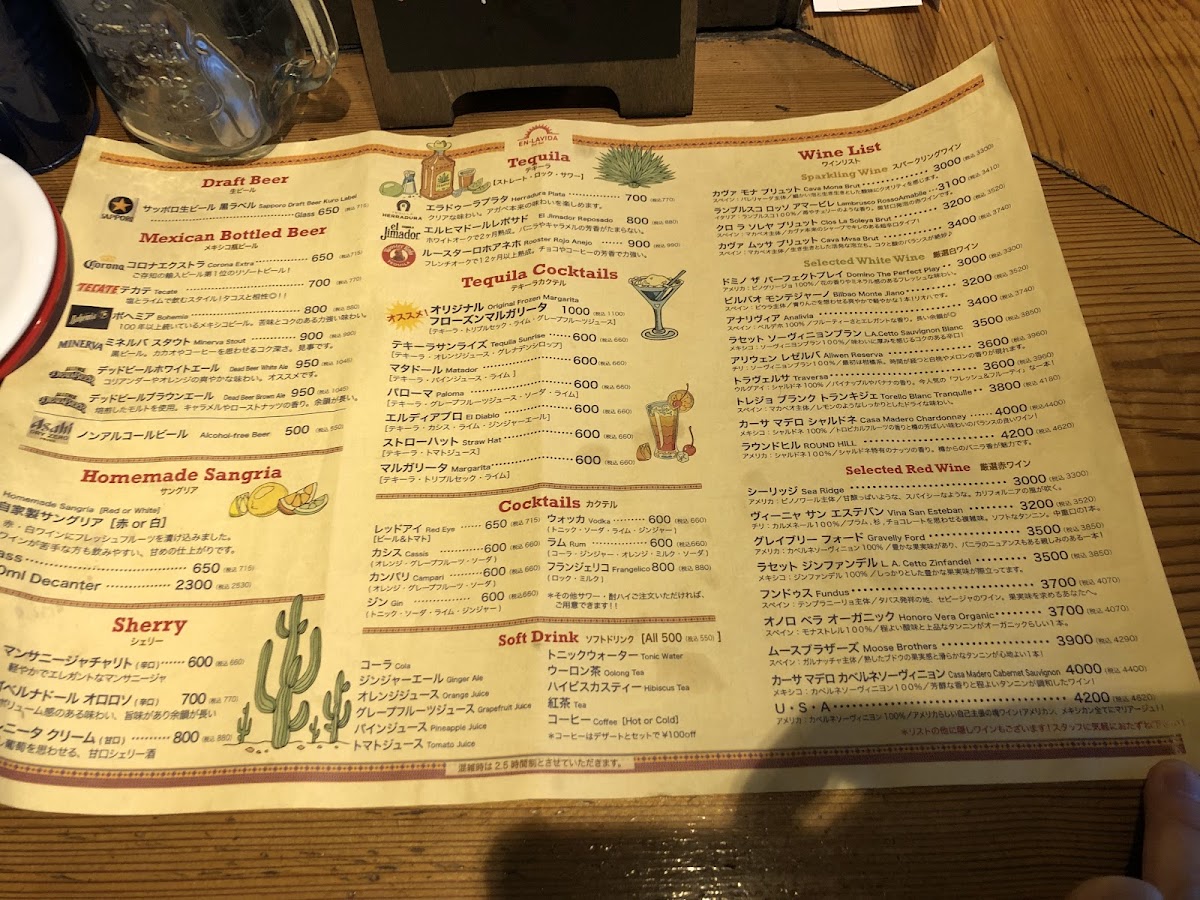 Draft Beer
生ビール
SAPPORO
サッポロ生ビール 黒ラベル Sapporo Draft Beer Kuro Label
Glass 650 (税込 715)
Mexican Bottled Beer
メキシコ瓶ビール
Corona コロナエクストラ Corona Extra 650 (税込 715)
ご存知の輸入ビール第1位のリゾートビール!
TECATE テカテ Tecate 700 (税込 770)
塩とライムで飲むスタイル!タコスと相性◎!!
ボヘミア Bohemia 800 (税込 880)
100年以上続いているメキシコビール。苦味とコクのある力強い味わい
MINERVA ミネルバ スタウト Minerva Stout 900 (税込 990)
黒ビール。カカオやコーヒーを思わせるコク深さ。見事です。
デッドビールホワイトエール Dead Beer White Ale 950 (税込 1045)
コリアンダーやオレンジの爽やかな味わい。オススメです。
デッドビールブラウンエール Dead Beer Brown Ale 950 (税込 1045)
焙煎したモルトを使用。キャラメルやローストナッツの香り。余韻が長い。
Asahi
DRY ZERO
ノンアルコールビール Alcohol-free Beer 500 (税込 550)
Homemade Sangria
サングリア
Homemade Sangria [Red or White]
自家製サングリア [赤 or 白]
赤・白ワインにフレッシュフルーツを漬け込みました。
ワインが苦手な方も飲みやすい、甘めの仕上がりです。
ass 650 (税込 715)
0ml Decanter 2300 (税込 2530)
Sherry
シェリー
マンサニージャチャリト (辛口) 600 (税込 660)
軽やかでエレガントなマンサニージャ
イベルナドール オロロソ (辛口) 700 (税込 770)
ボリューム感のある味わい、旨味があり余韻が長い
ニータ クリーム (甘口) 800 (税込 880)
葡萄を思わせる、甘口シェリー酒
EN-LAVIDA
Tequila
テキーラ
[ストレート・ロック・サワー]
HERRADURA
エラドゥーラプラタ Herradura Plata 700 (税込 770)
クリアな味わい。アガベ本来の味わいを楽しめます。
el Jimador
エルヒマドールレポサド El Jimador Reposado 800 (税込 880)
ホワイトオークで2ヶ月熟成。バニラやキャラメルの芳香がたまらない。
ルースターロホアネホ Rooster Rojo Anejo 900 (税込 990)
フレンチオークで12ヶ月以上熟成。チョコやコーヒーの芳香で力強い。
Tequila Cocktails
テキーラカクテル
オススメ!
オリジナル Original Frozen Margarita
フローズンマルガリータ 1000 (税込 1100)
[テキーラ・トリプルセック・ライム・グレープフルーツジュース]
テキーラサンライズ Tequila Sunrise 600 (税込 660)
[テキーラ・オレンジジュース・グレナデンシロップ]
マタドール Matador 600 (税込 660)
[テキーラ・パインジュース・ライム]
パローマ Paloma 600 (税込 660)
[テキーラ・グレープフルーツジュース・ソーダ・ライム]
エルディアブロ El Diablo 600 (税込 660)
[テキーラ・カシス・ライム・ジンジャーエール]
ストローハット Straw Hat 600 (税込 660)
[テキーラ・トマトジュース]
マルガリータ Margarita 600 (税込 660)
[テキーラ・トリプルセック・ライム]
Cocktails カクテル
レッドアイ Red Eye 650 (税込 715)
[ビール&トマト]
カシス Cassis 600 (税込 660)
(オレンジ・グレープフルーツ・ソーダ)
カンパリ Campari 600 (税込 660)
(オレンジ・グレープフルーツ・ソーダ)
ジン Gin 600 (税込 660)
(トニック・ソーダ・ライム・ジンジャー)
ウォッカ Vodka 600 (税込 660)
(トニック・ソーダ・ライム・ジンジャー)
ラム Rum 600 (税込 660)
(コーラ・ジンジャー・オレンジ・ミルク・ソーダ)
フランジェリコ Frangelico 800 (税込 880)
(ロック・ミルク)
*その他サワー・酎ハイご注文いただければ、
ご用意できます!!
Soft Drink ソフトドリンク [All 500 (税込 550)]
コーラ Cola
ジンジャーエール Ginger Ale
オレンジジュース Orange Juice
グレープフルーツジュース Grapefruit Juice
パインジュース Pineapple Juice
トマトジュース Tomato Juice
トニックウォーター Tonic Water
ウーロン茶 Oolong Tea
ハイビスカスティー Hibiscus Tea
紅茶 Tea
コーヒー Coffee [Hot or Cold]
*コーヒーはデザートとセットで¥100off
混雑時は2.5時間制とさせていただきます。
Wine List
ワインリスト
Sparkling Wine スパークリングワイン
カヴァ モナ ブリュット Cava Mona Brut 3000 (税込 3300)
ランブルスコ ロッソ アマービレ Lambrusco RossoAmabile 3100 (税込 3410)
クロ ラ ソレヤ ブリュット Clos La Soleya Brut 3200 (税込 3520)
カヴァ ムッサ ブリュット Cava Mvsa Brut 3400 (税込 3740)
Selected White Wine 厳選白ワイン
ドミノ ザ パーフェクトプレイ Domino The Perfect Play 3000 (税込 3300)
ビルバオ モンテジャーノ Bilbao Monte Jlano 3200 (税込 3520)
アナリヴィア Analivia 3400 (税込 3740)
ラセット ソーヴィニョンブラン L.A.Cetto Sauvignon Blanc 3500 (税込 3850)
アリウェン レゼルバ Aliwen Reserva 3600 (税込 3960)
トラヴェルサ Traversa 3600 (税込 3960)
トレジョ ブランク トランキジェ Torello Blanc Tranquille 3800 (税込 4180)
カーサ マデロ シャルドネ Casa Madero Chardonnay 4000 (税込 4400)
ラウンドヒル ROUND HILL 4200 (税込 4620)
アメリカ:シャルドネ100%/シャルドネ特有のナッツの香り。樽からのバニラ香が魅力です。
Selected Red Wine 厳選赤ワイン
シーリッジ Sea Ridge 3000 (税込 3300)
アメリカ:ピノノワール主体/甘酸っぱいような、スパイシーなような。カリフォルニアの風が吹く。
ヴィーニャ サン エステバン Vina San Esteban 3200 (税込 3520)
グレイブリー フォード Gravelly Ford 3500 (税込 3850)
ラセット ジンファンデル L. A. Cetto Zinfandel 3500 (税込 3850)
メキシコ:ジンファンデル 100%/しっかりとした豊かな果実味が際立ってます。
フンドゥス Fundus 3700 (税込 4070)
スペイン:テンプラニーリョ主体/タパス発祥の地、セビージャのワイン。果実味を求めるあなたへ。
オノロ ベラ オーガニック Honoro Vera Organic 3700 (税込 4070)
スペイン:モナストレル100%/程よい酸味と上品なタンニンがオーガニックらしい1本。
ムースブラザーズ Moose Brothers 3900 (税込 4290)
スペイン:ガルナッチャ主体/熟したブドウの果実感と滑らかなタンニンが心地よい1本!
カーサ マデロ カベルネソーヴィニヨン Casa Madero Cabernet Sauvignon 4000 (税込 4400)
メキシコ:カベルネソーヴィニヨン100%/芳醇な香りと程よいタンニンが調和したワイン!
U・S・A 4200 (税込 4620)
*リストの他に隠しワインもございます!スタッフに気軽におたずね